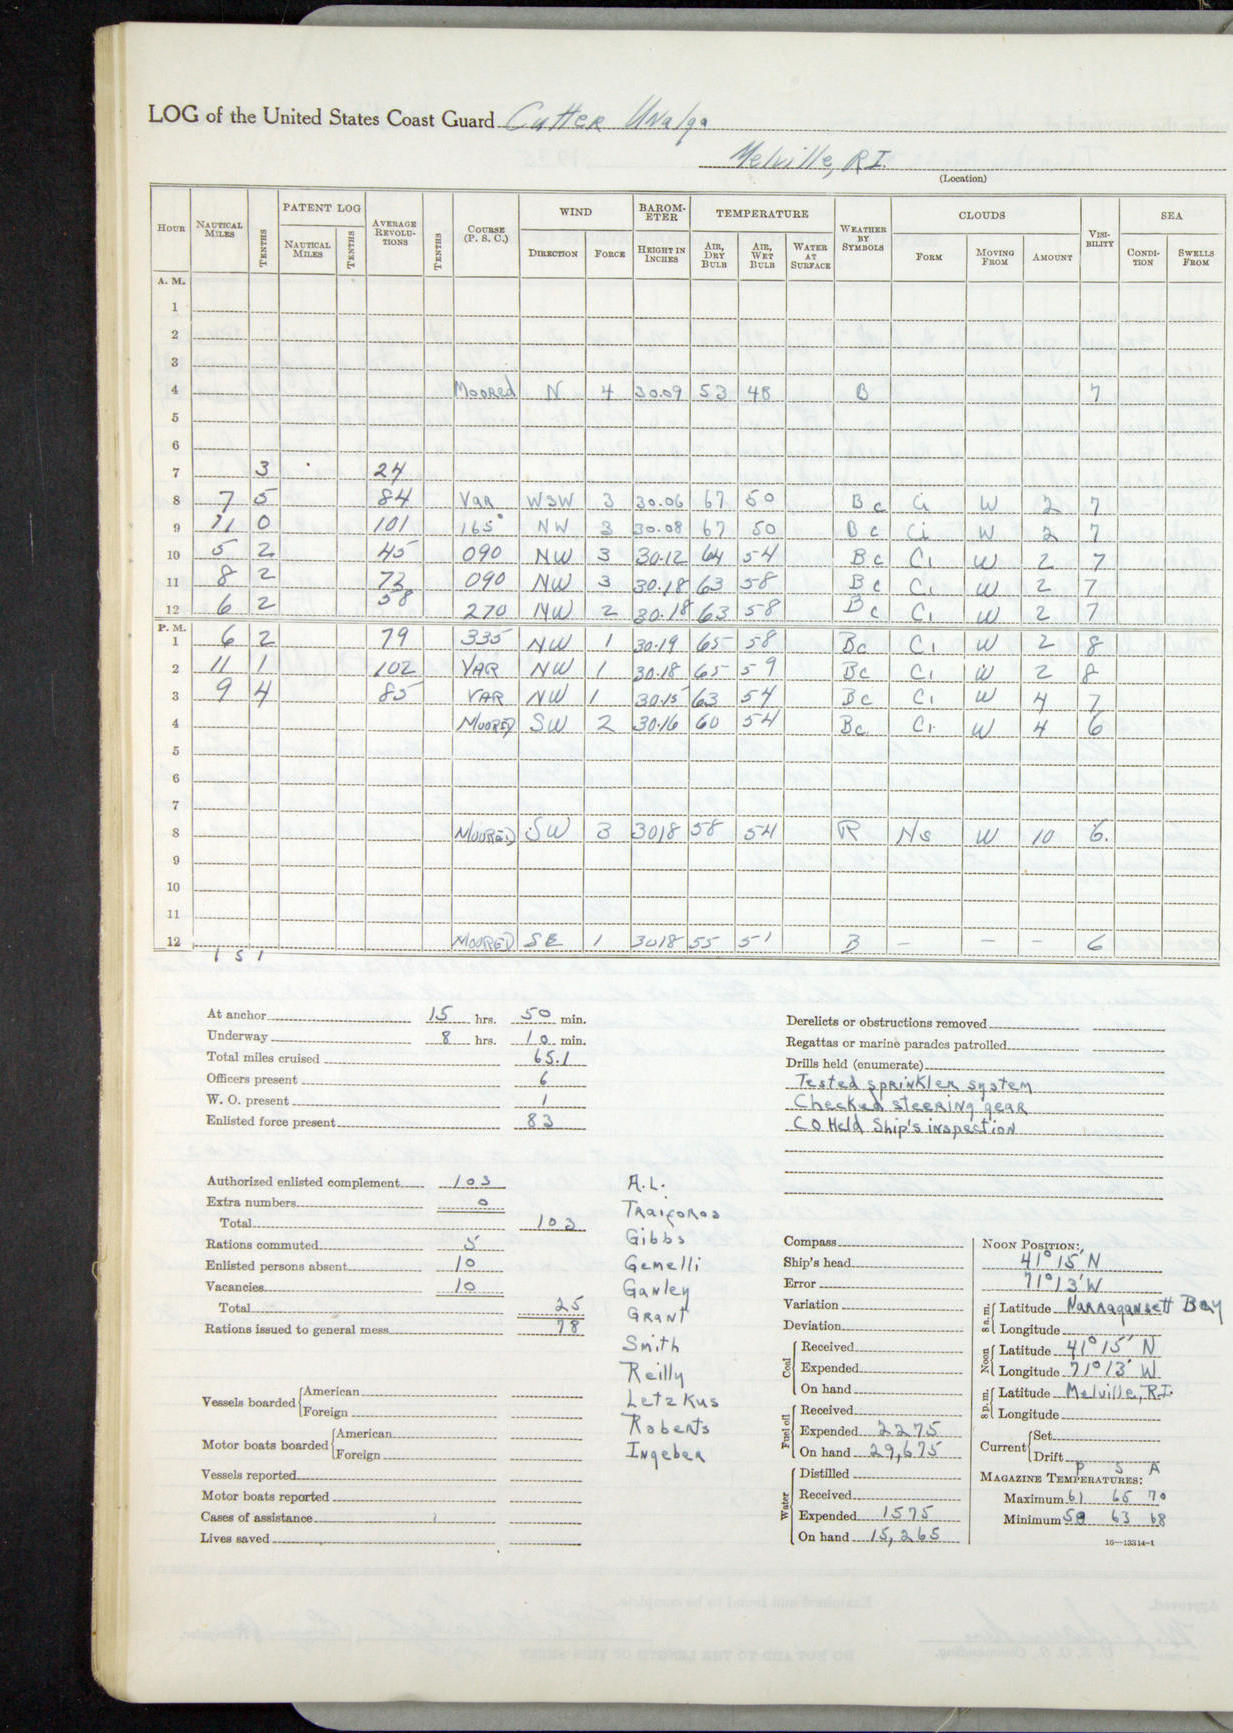 LOG of the United States Coast Guard Cutter Unalga
Melville, R.I.
(Location)
HOUR NAUTICAL MILES TENTHS PATENT LOG NAUTICAL MILES TENTHS AVERAGE REVOLUTIONS TENTHS COURSE (P. S. C.) WIND DIRECTION FORCE BAROMETER HEIGHT IN INCHES TEMPERATURE AIR, DRY BULB AIR, WET BULB WATER AT SURFACE WEATHER BY SYMBOLS CLOUDS FORM MOVING FROM AMOUNT VISIBILITY SEA CONDITION SWELLS FROM
A. M.
1
2
3
4 Moored N 4 30.09 53 48 B 7
5
6
7 3 24
8 7 5 84 Var WSW 3 30.06 67 50 Bc Ci W 2 7
9 11 0 101 165° NW 3 30.08 67 50 Bc Ci W 2 7
10 5 2 45 090 NW 3 30.12 64 54 Bc Ci W 2 7
11 8 2 73 090 NW 3 30.18 63 58 Bc Ci W 2 7
12 6 2 58 270 NW 2 30.18 63 58 Bc Ci W 2 7
P. M.
1 6 2 79 335 NW 1 30.19 65 58 Bc Ci W 2 8
2 11 1 102 VAR NW 1 30.18 65 59 Bc Ci W 2 8
3 9 4 85 VAR NW 1 30.15 63 54 Bc Ci W 4 7
4 MOORED SW 2 30.16 60 54 Bc Ci W 4 6
5
6
7
8 MOORED SW 3 3018 58 54 R Ns W 10 6.
9
10
11
12 MOORED SE 1 3018 55 51 B – – – 6
1 5 1
At anchor 15 hrs. 50 min.
Underway 8 hrs. 10 min.
Total miles cruised 65.1
Officers present 6
W. O. present 1
Enlisted force present 83
Authorized enlisted complement 103
Extra numbers 0
Total 103
Rations commuted 5
Enlisted persons absent 10
Vacancies 10
Total 25
Rations issued to general mess 78
Vessels boarded American
Foreign
Motor boats boarded American
Foreign
Vessels reported
Motor boats reported
Cases of assistance
Lives saved
A.L.
Traiforos
Gibbs
Gemelli
Ganley
Grant
Smith
Reilly
Letzkus
Roberts
Ingeber
Derelicts or obstructions removed
Regattas or marine parades patrolled
Drills held (enumerate)
Tested sprinkler system
Checked steering gear
CO Held Ship's inspection
Compass
Ship's head
Error
Variation
Deviation
Coal Received
Expended
On hand
Fuel oil Received
Expended 2275
On hand 29,675
Water Distilled
Received
Expended 1575
On hand 15,265
NOON POSITION:
41° 15' N
71° 13' W
8 a.m. Latitude Narragansett Bay
Longitude
Noon Latitude 41° 15' N
Longitude 71° 13' W
8 p.m. Latitude Melville, R.I.
Longitude
Current Set
Drift
P S A
MAGAZINE TEMPERATURES:
Maximum 61 65 70
Minimum 63 68
16—13314-1